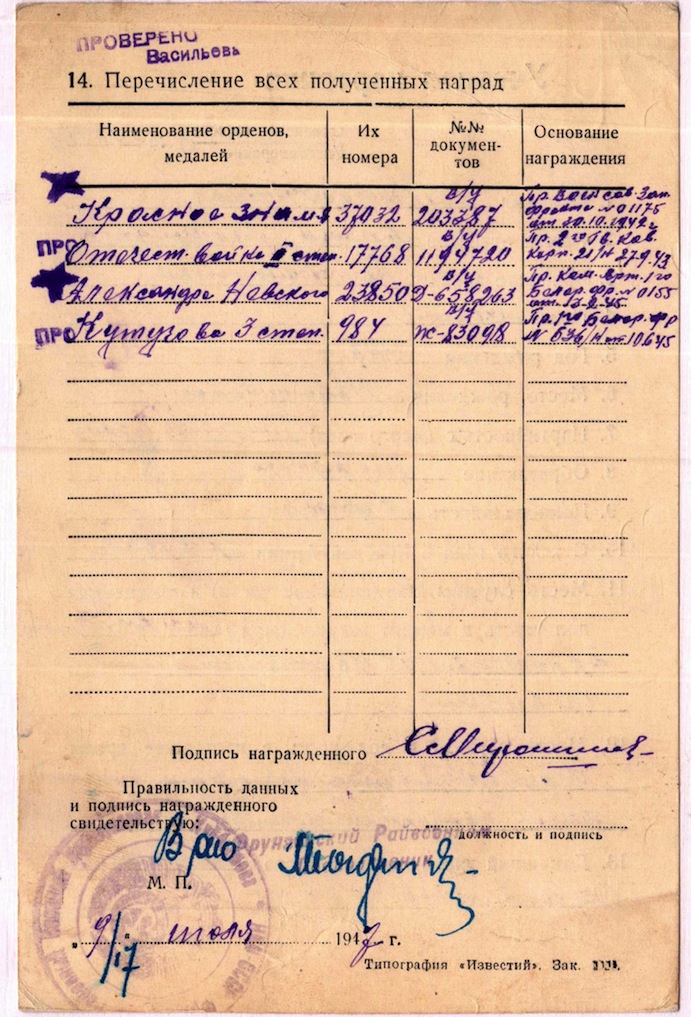 ПРОВЕРЕНО
Васильева
14. Перечисление всех полученных наград
Наименование орденов, медалей
Их номера
№№ докумен-тов
Основание награждения
Красное знамя 37032 в/у 203787 Пр. Воен сов. Зап. фронта № 01175 от 30.10.1942г
ПРО Отечест. война II степ. 17768 в/у 1194720 Пр. 2 гв. Кав. Корп. 21/н 27.9.43
Александра Невского 23850 в/у Д-658263 Пр. Ком. Арт. 1го Белор. фр № 0155 от 13-2-45
ПРО Кутузова 3 степ. 984 в/у 83098 Пр. 1го Белор. фр № 636/н от 10.6.45
Подпись награжденного
Правильность данных
и подпись награжденного
свидетельствую:
должность и подпись
Врио
М. П.
„9/17" июля 1947 г.
Типография «Известий». Зак.